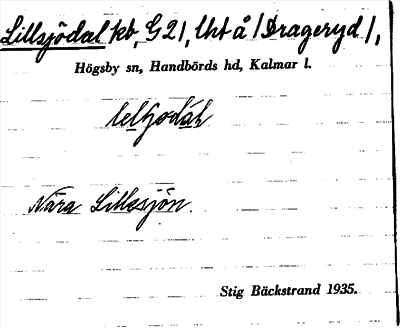 Lillsjödal kb, G 21, lht å /Drageryd/,
Högsby sn, Handbörds hd, Kalmar l.
Nära Lillsjön.
Stig Bäckstrand 1935.